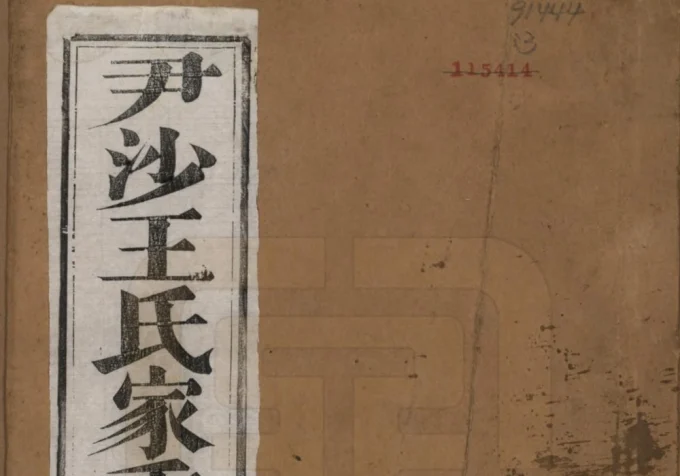 尹沙王氏家
91444
115414